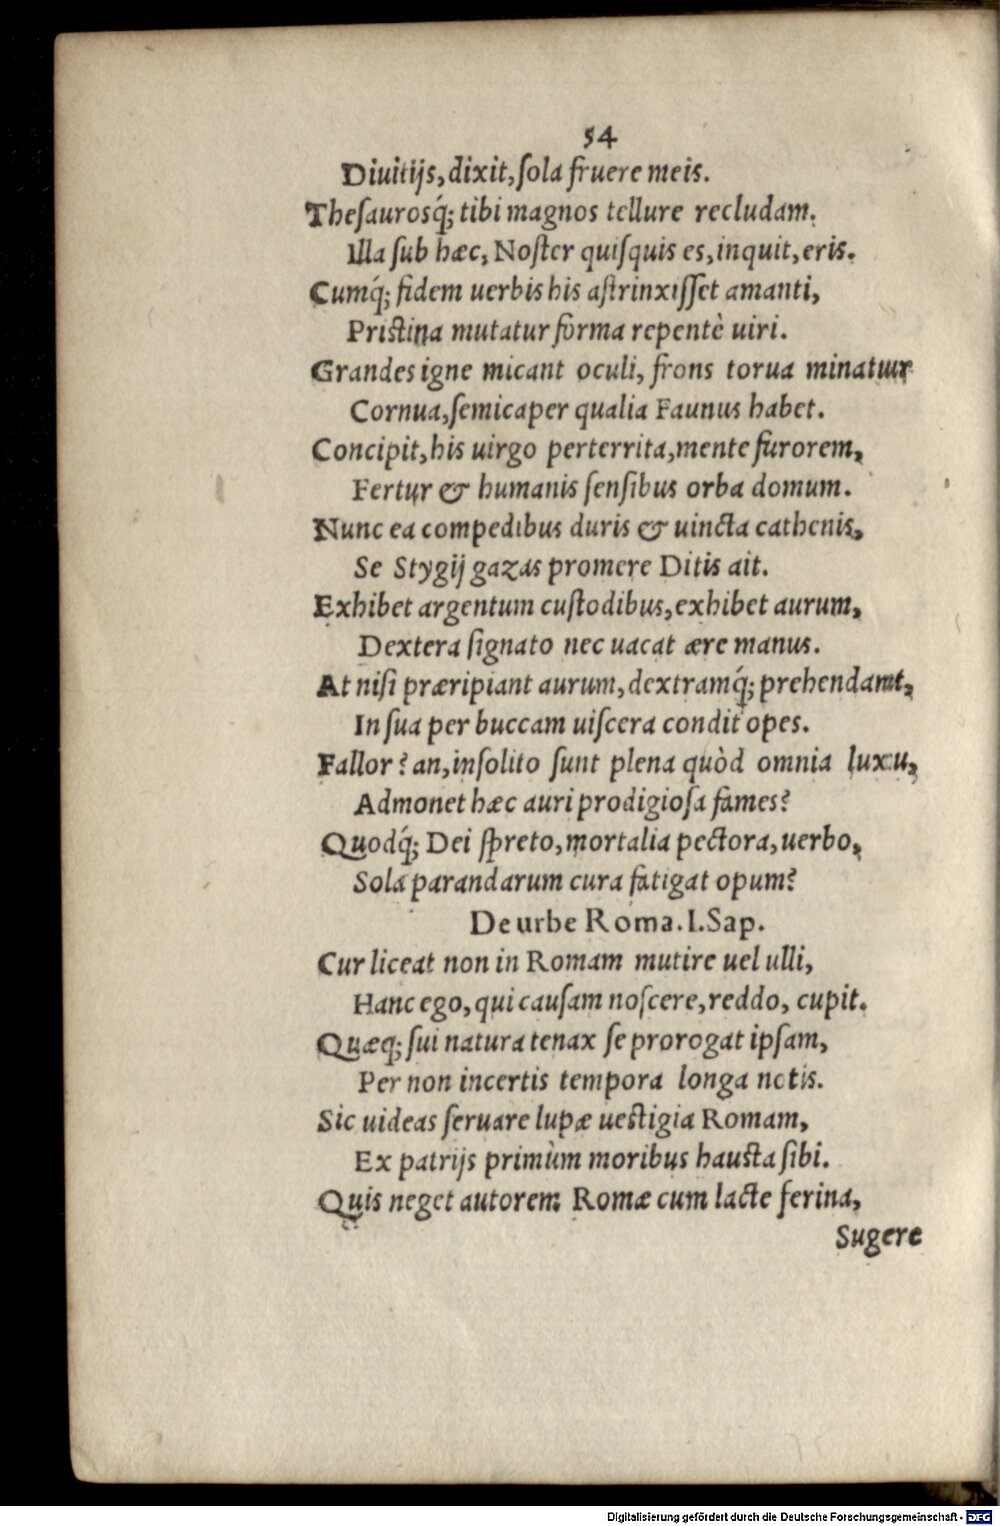 54
Diuitijs, dixit, sola fruere meis.
Thesaurosq́; tibi magnos tellure recludam.
Illa sub hæc, Noster quisquis es, inquit, eris.
Cumq́; fidem uerbis his astrinxisset amanti,
Pristina mutatur forma repentè uiri.
Grandes igne micant oculi, frons torua minatur
Cornua, semicaper qualia Faunus habet.
Concipit, his uirgo perterrita, mente furorem,
Fertur & humanis sensibus orba domum.
Nunc ea compedibus duris & uincta cathenis,
Se Stygij gazas promere Ditis ait.
Exhibet argentum custodibus, exhibet aurum,
Dextera signato nec uacat ære manus.
At nisi præripiant aurum, dextramq́; prehendant,
In sua per buccam uiscera condit opes.
Fallor? an, insolito sunt plena quòd omnia luxu,
Admonet hæc auri prodigiosa fames?
Quodq́; Dei spreto, mortalia pectora, uerbo,
Sola parandarum cura fatigat opum?
De urbe Roma. I. Sap.
Cur liceat non in Romam mutire uel ulli,
Hanc ego, qui causam noscere, reddo, cupit.
Quæq; sui natura tenax se prorogat ipsam,
Per non incertis tempora longa notis.
Sic uideas seruare lupæ uestigia Romam,
Ex patrijs primùm moribus hausta sibi.
Quis neget autorem Romæ cum lacte ferina,
Sugere
Digitalisierung gefördert durch die Deutsche Forschungsgemeinschaft - DFG